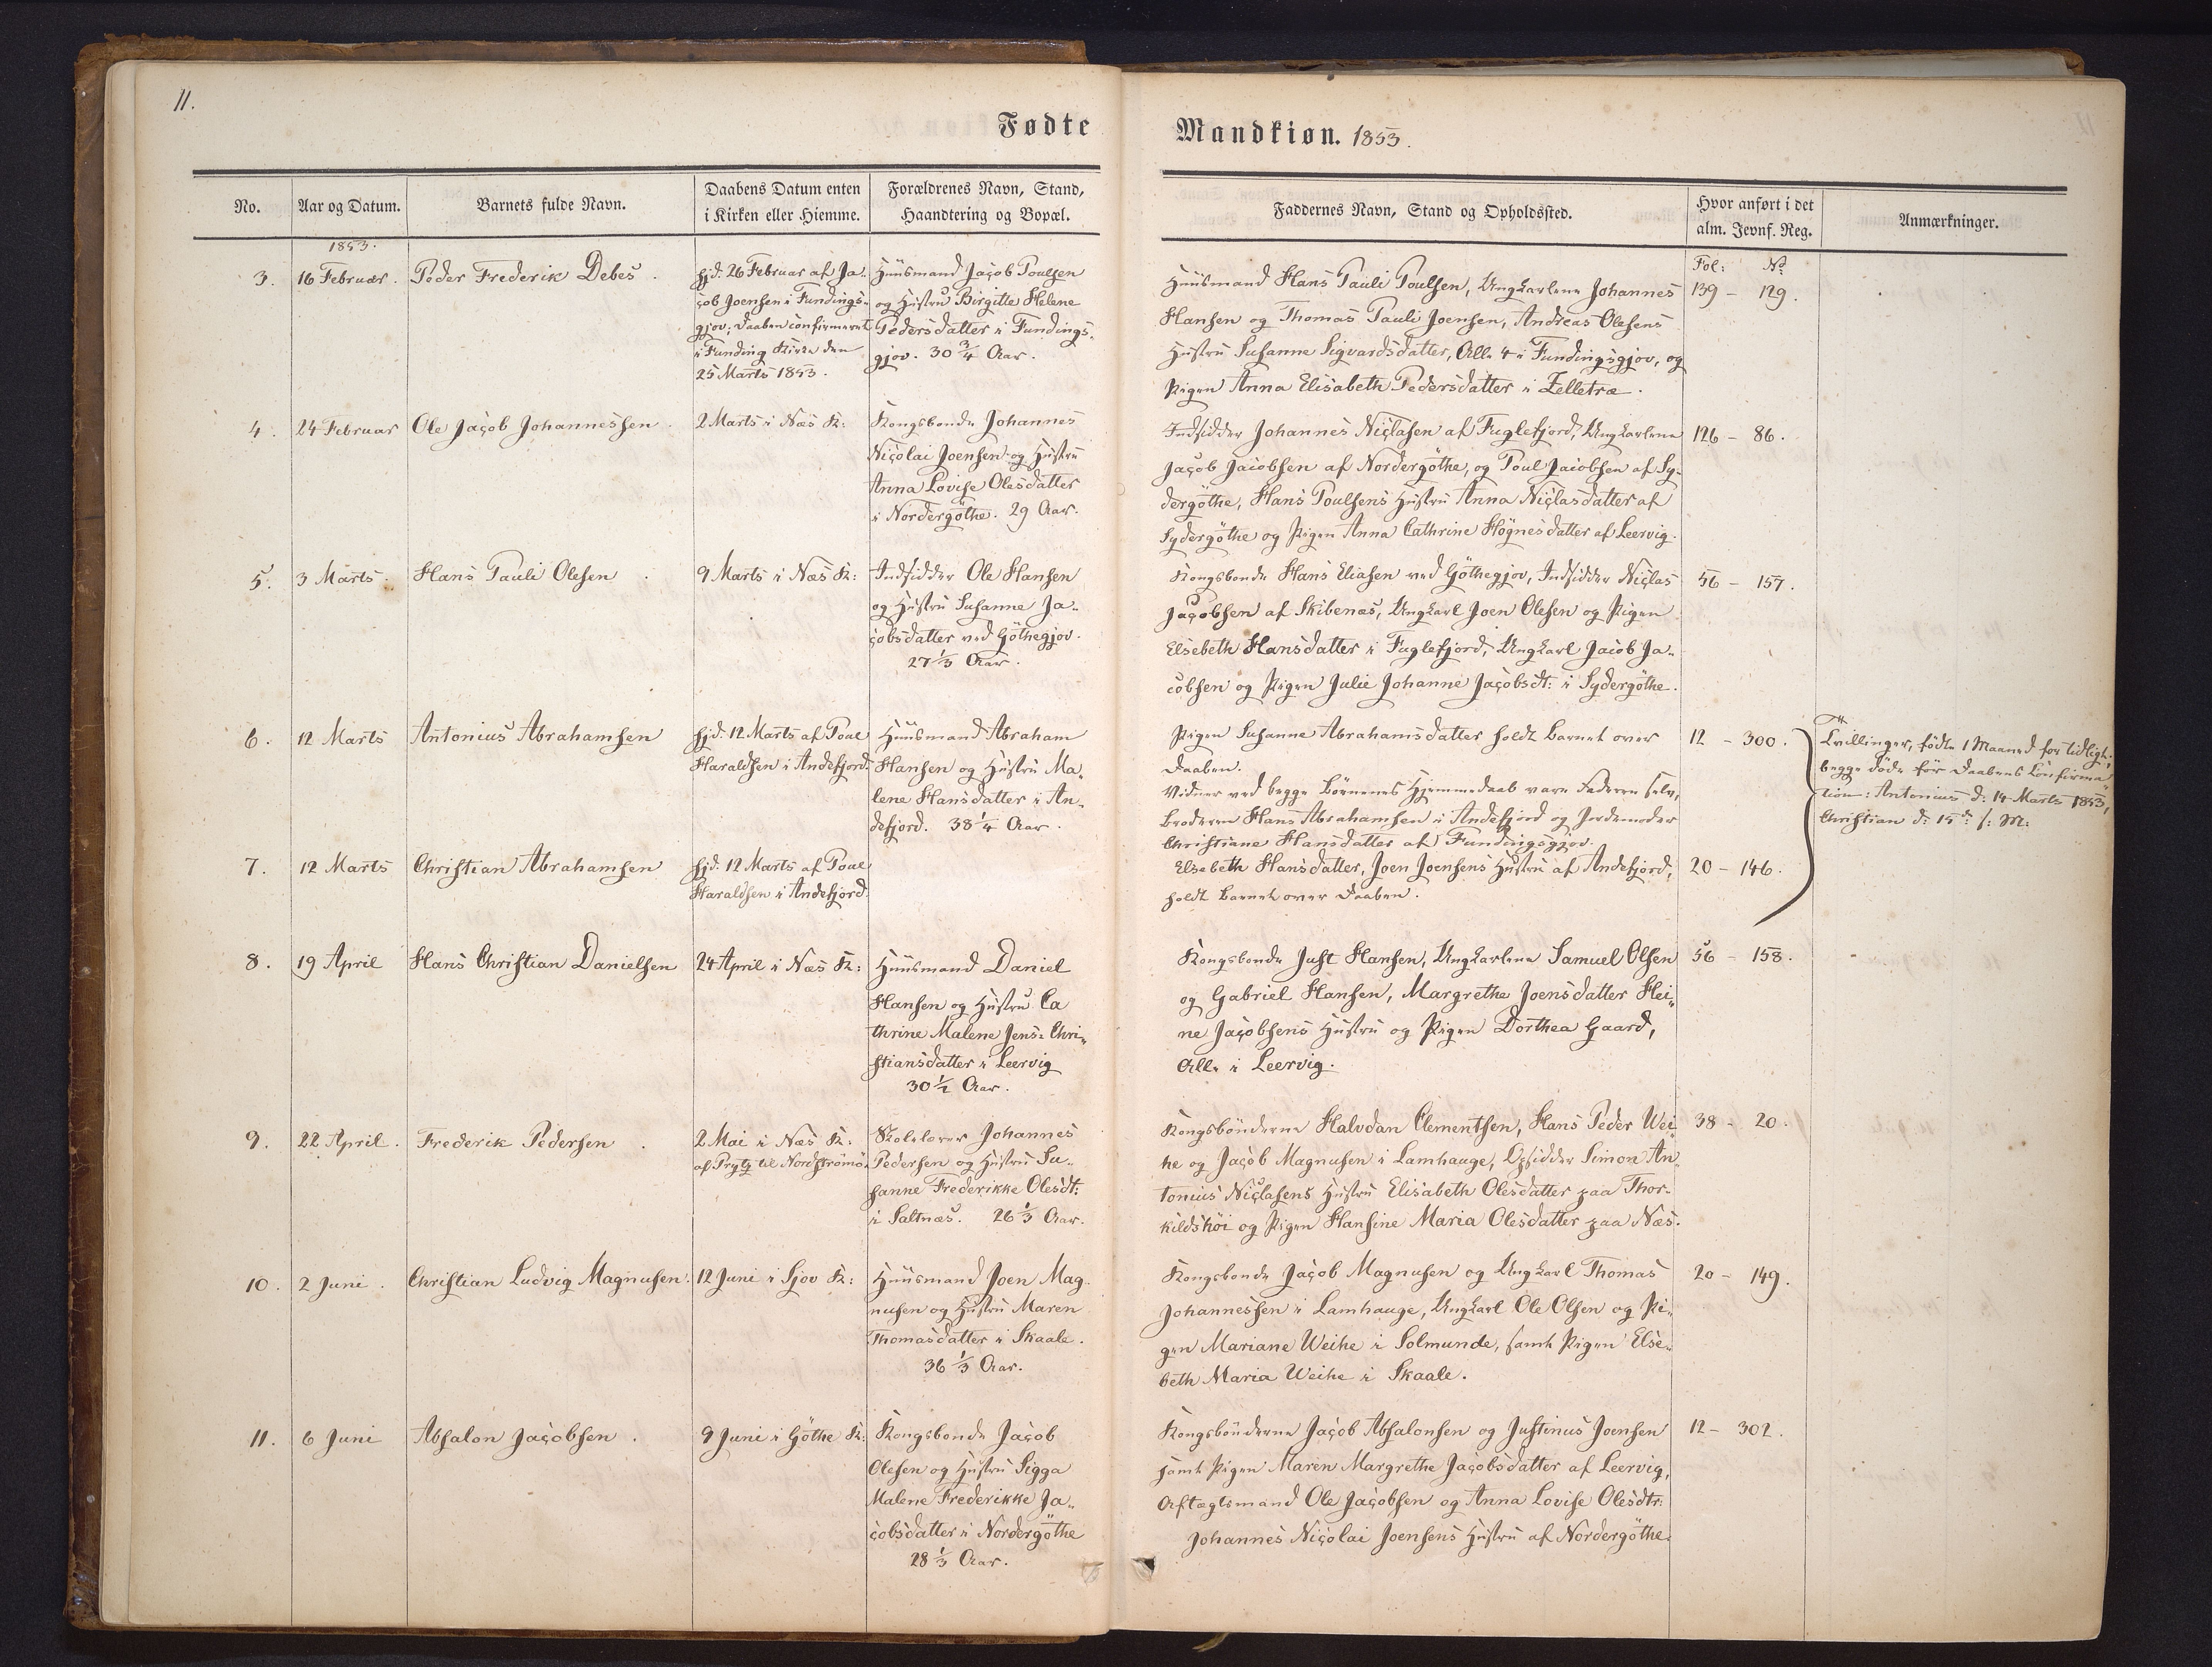 11.
Fødte
Mandkiøn. 1853.
No.
Aar og Datum.
Barnets fulde Navn.
Daabens Datum enten
i Kirken eller Hiemme.
Forældrenes Navn, Stand,
Haandtering og Bopæl.
Faddernes Navn, Stand og Opholdssted.
Hvor anført i det
alm. Jevnf. Reg.
Anmærkninger.
1853.
3.
16 Februar.
Peder Frederik Debes.
hjd. 26 Februar af Ja-
cob Joensen i Fundings-
gjov; Daaben confirmeret
i Funding Kirke den
25 Marts 1853.
Huusmand Jacob Poulsen
og Hustru Birgitte Helene
Pedersdatter i Fundings-
gjov. 30 3/4 Aar.
Huusmand Hans Pauli Poulsen, Ungkarlene Johannes
Hansen og Thomas Pauli Joensen, Andreas Olesens
Hustru Susanne Sigvardsdatter, Alle 4 i Fundingsgjov, og
Pigen Anna Elisabeth Pedersdatter i Zelletræ.
Fol: No
139 - 129.
4.
24 Februar
Ole Jacob Johannessen.
2 Marts i Næs K:
Kongsbonde Johannes
Nicolai Joensen og Hustru
Anna Lovise Olesdatter
i Nordergøthe. 29 Aar.
Indsidder Johannes Niclasen af Fuglefjord, Ungkarlene
Jacob Jacobsen af Nordergöthe, og Poul Jacobsen af Sy-
dergöthe, Hans Poulsens Hustru Anna Niclasdatter af
Sydergöthe og Pigen Anna Cathrine Högnesdatter af Leervig.
126 - 86.
5.
3 Marts.
Hans Pauli Olesen.
9 Marts i Næs K:
Indsidder Ole Hansen
og Hustru Susanne Ja-
cobsdatter ved Göthegjov.
27 1/3 Aar.
Kongsbonde Hans Eliasen ved Göthegjov, Indsidder Niclas
Jacobsen af Skibenæs, Ungkarl Joen Olesen og Pigen
Elsebeth Hansdatter i Fuglefjord, Ungkarl Jacob Ja-
cobsen og Pigen Julie Johanne Jacobsdt: i Sydergöthe.
56 - 157.
6.
12 Marts
Antonius Abrahamsen
hjd. 12 Marts af Poul
Haraldsen i Andefjord.
Huusmand Abraham
Hansen og Hustru Ma-
lene Hansdatter i An-
defjord. 38 1/4 Aar.
Pigen Susanne Abrahamsdatter holdt Barnet over
Daaben.
Vidner ved begge Börnenes Hjemmedaab vare Faderen selv,
Broderen Hans Abrahamsen i Andefjord og Jordemoder
Christiane Hansdatter af Fundingsgjov.
12 - 300.
Tvillinger, födte 1 Maaned for tidligt;
begge döde för Daabens Confirma-
tion: Antonius d: 14 Marts 1853,
Christian d: 15de s: M:
7.
12 Marts
Christian Abrahamsen
hjd. 12 Marts af Poul
Haraldsen i Andefjord.
Elsebeth Hansdatter, Joen Joensens Hustru af Andefjord,
holdt Barnet over Daaben.
20 - 146.
8.
19 April
Hans Christian Danielsen
24 April i Næs K:
Huusmand Daniel
Hansen og Hustru Ca
thrine Malene Jens-Chri-
stiansdatter i Leervig
30 1/2 Aar.
Kongsbonde Just Hansen, Ungkarlene Samuel Olsen
og Gabriel Hansen, Margrethe Joensdatter Hei-
ne Jacobsens Hustru og Pigen Dorthea Gaard,
Alle i Leervig.
56 - 158.
9.
22 April.
Frederik Pedersen.
2 Mai i Næs K:
af Prytz til Nordströmö.
Skolelærer Johannes
Pedersen og Hustru Su-
sanne Frederikke Olesdt:
i Saltnæs. 26 1/3 Aar.
Kongsbönderne Halvdan Clementsen, Hans Peder Wei-
he og Jacob Magnusen i Lamhauge, Opsidder Simon An-
tonius Niclasens Hustru Elisabeth Olesdatter paa Thor-
kildshöi og Pigen Hansine Maria Olesdatter paa Næs.
38 - 20.
10.
2 Juni.
Christian Ludvig Magnusen.
12 Juni i Sjov K:
Huusmand Joen Mag-
nusen og Hustru Maren
Thomasdatter i Skaale.
36 1/3 Aar.
Kongsbonde Jacob Magnusen og Ungkarl Thomas
Johannessen i Lamhauge, Ungkarl Ole Olsen og Pi-
gen Mariane Weihe i Solmunde, samt Pigen Else-
beth Maria Weihe i Skaale.
20 - 149.
11.
6 Juni
Absalon Jacobsen.
9 Juni i Göthe K:
Kongsbonde Jacob
Olesen og Hustru Sigga
Malene Frederikke Ja-
cobsdatter i Nordergöthe
28 1/3 Aar.
Kongsbönderne Jacob Absalonsen og Justinus Joensen
samt Pigen Maren Margrethe Jacobsdatter af Leervig,
Aftægtsmand Ole Jacobsen og Anna Lovise Olesdtr:
Johannes Nicolai Joensens Hustru af Nordergöthe.
12 - 302.